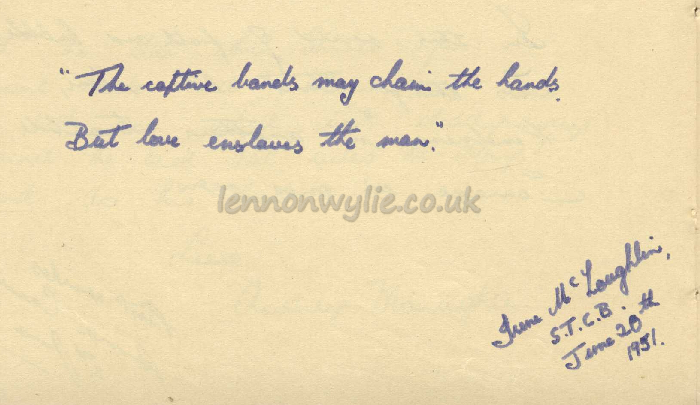 "The captive bands may chain the hands
But love enslaves the man."
lennonwylie.co.uk
Irene McLoughlin,
S.T.C.B.
June 20th
1951.